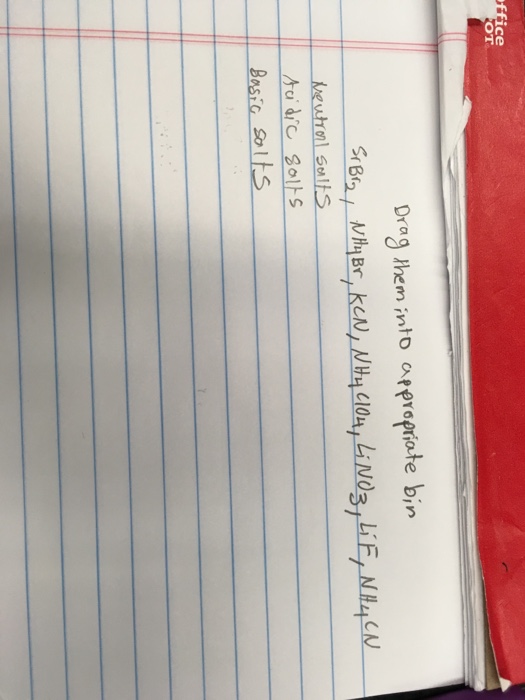 ffice
OT
Drag them into appropriate bin
SrBr2, NH4Br, KCN, NH4ClO4, LiNO3, LiF, NH4CN
Neutral salts
Acidic salts
Basic salts